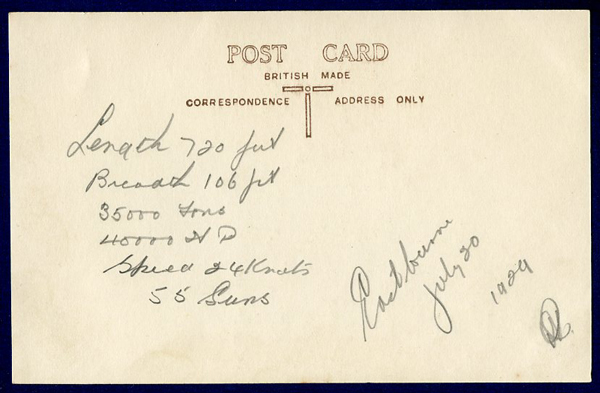 POST CARD
BRITISH MADE
CORRESPONDENCE ADDRESS ONLY
Length 720 feet
Breadth 106 ft
35000 Tons
40000 H P
Speed 24 Knots
55 Guns
Eastbourne
July 20
1929